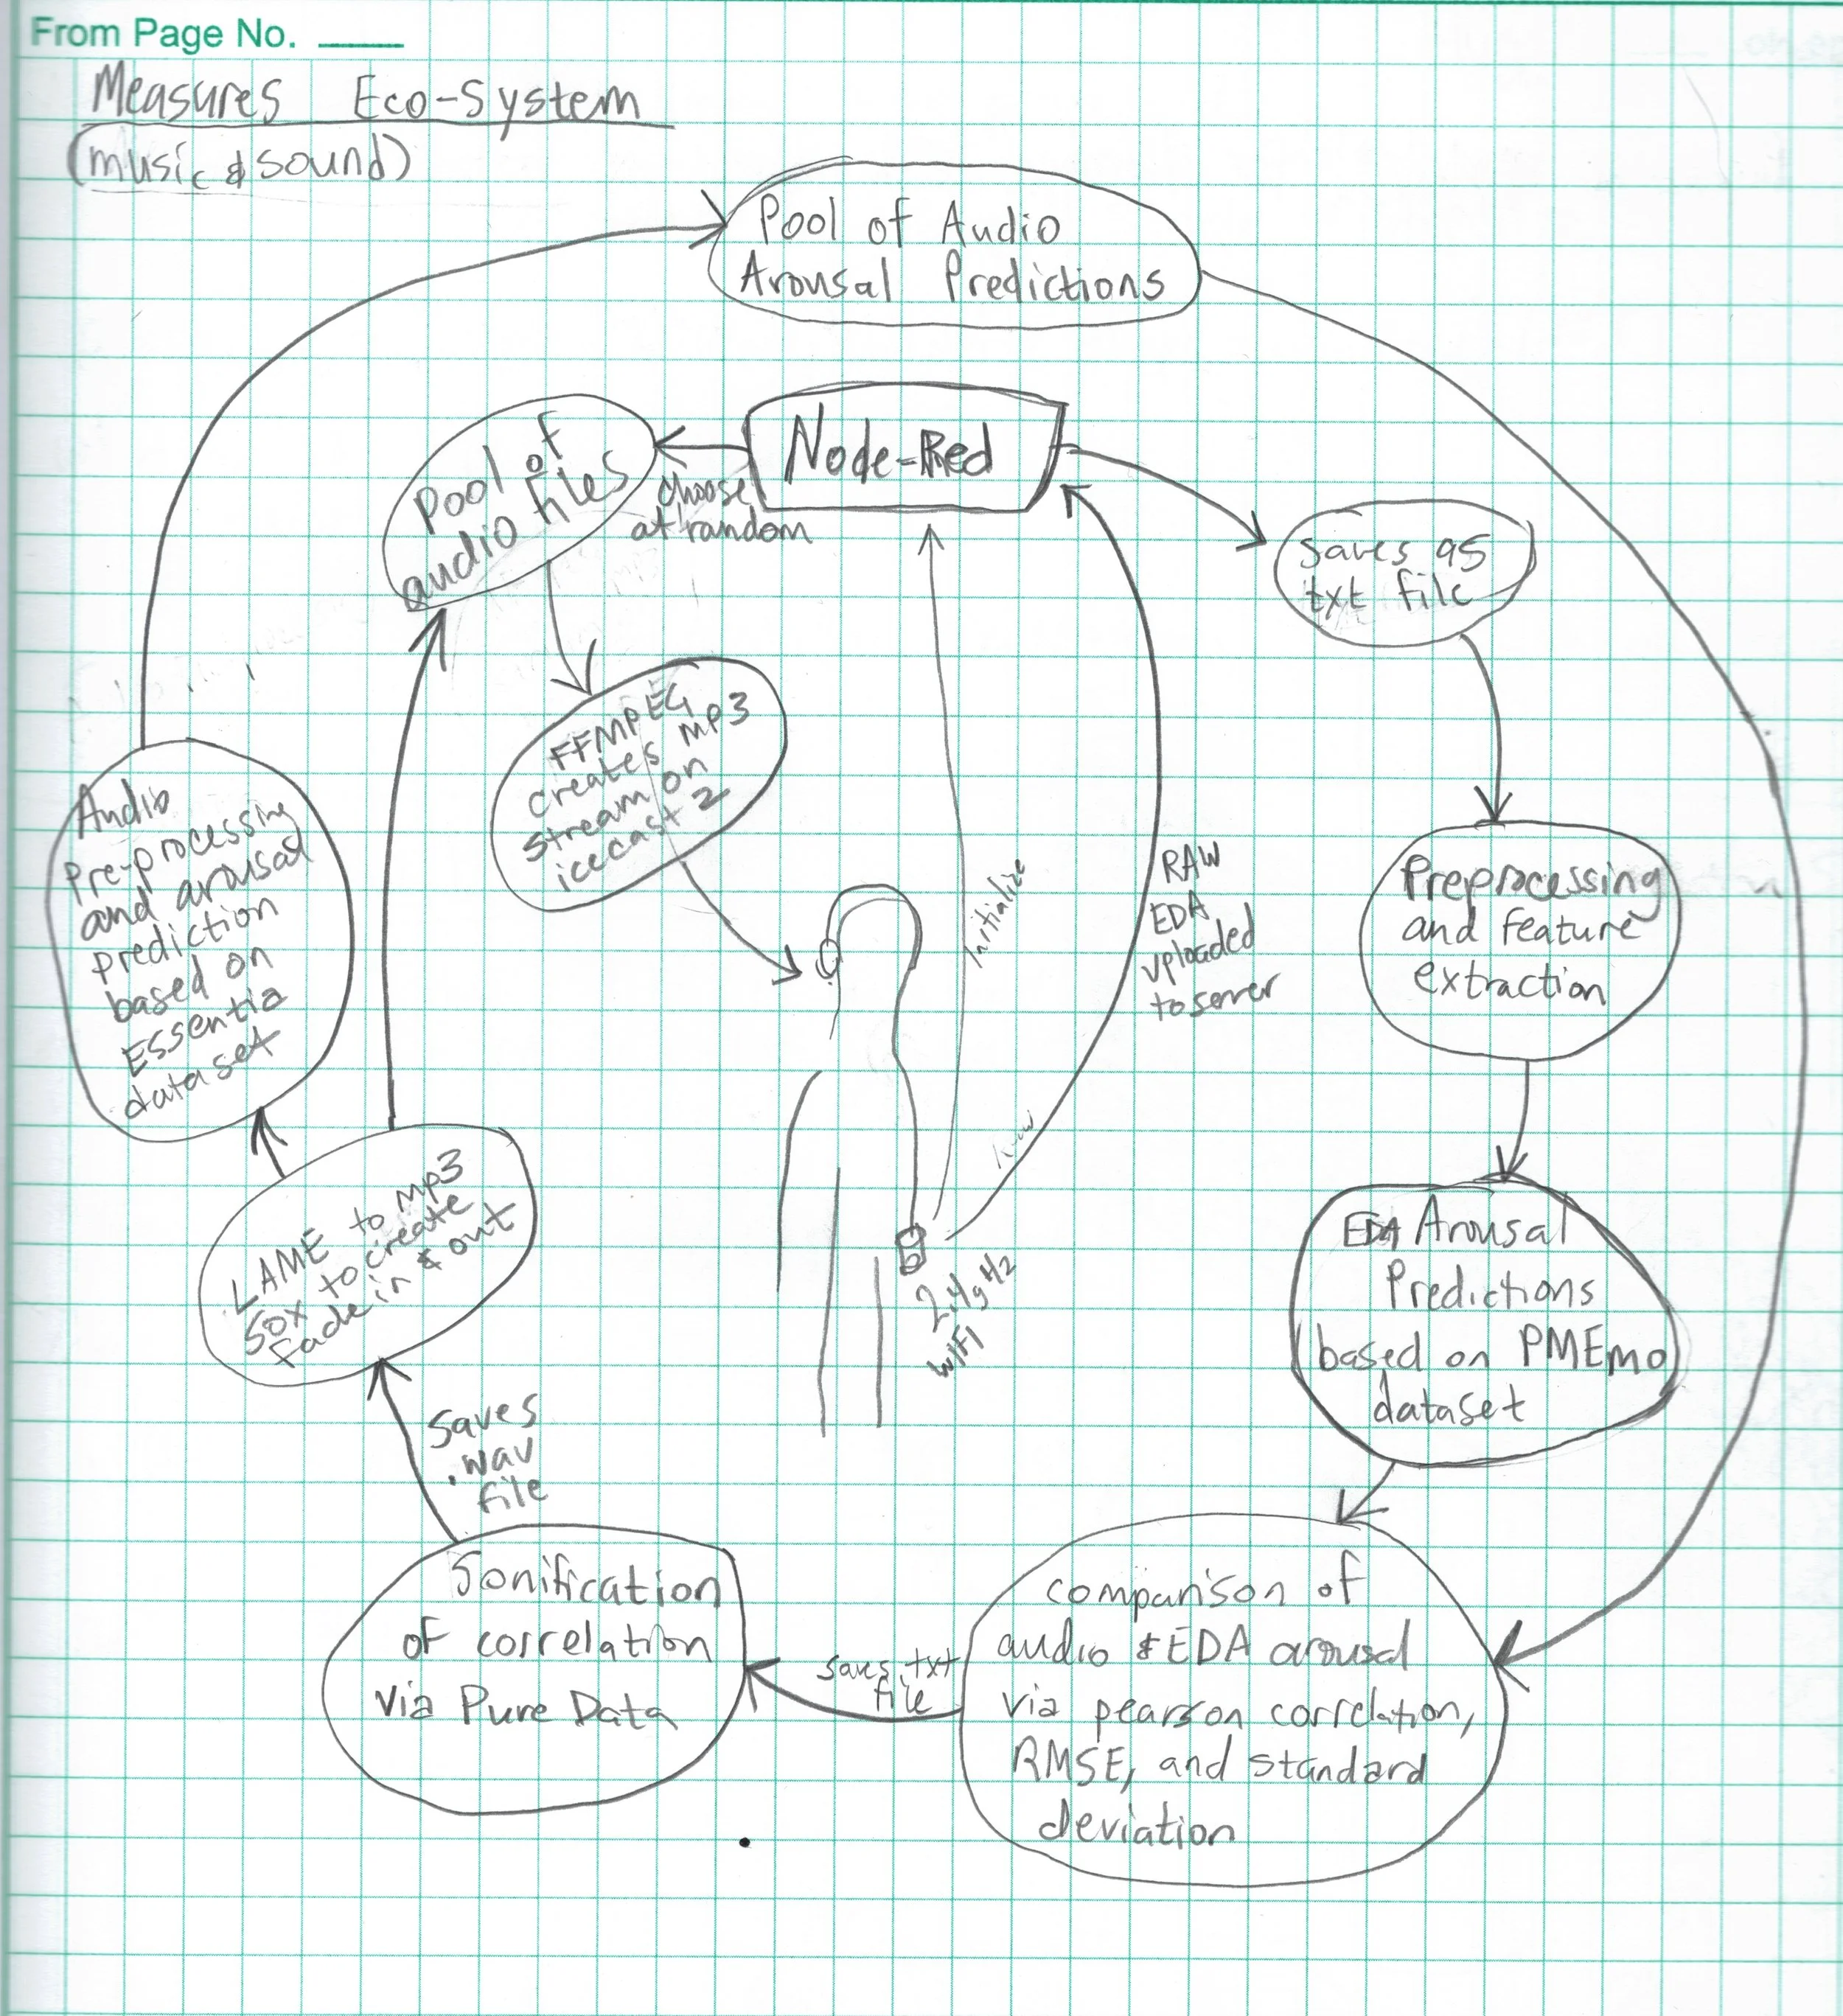 From Page No.
Measures Eco-System
(music & sound)
Pool of Audio
Arousal Predictions
Node-Red
Pool of
audio files
choose
at random
saves as
txt file
FFMPEG
creates MP3
stream on
icecast 2
Initialize
RAW
EDA
uploaded
to server
Audio
Pre-processing
and arousal
prediction
based on
Essentia
dataset
Preprocessing
and feature
extraction
LAME to mp3
Sox to create
fade in & out
2.4gHz
WIFI
EDA Arousal
Predictions
based on PMEmo
dataset
Saves
.wav
file
Sonification
of correlation
via Pure Data
saves .txt
file
comparison of
audio & EDA arousal
via pearson correlation,
RMSE, and standard
deviation